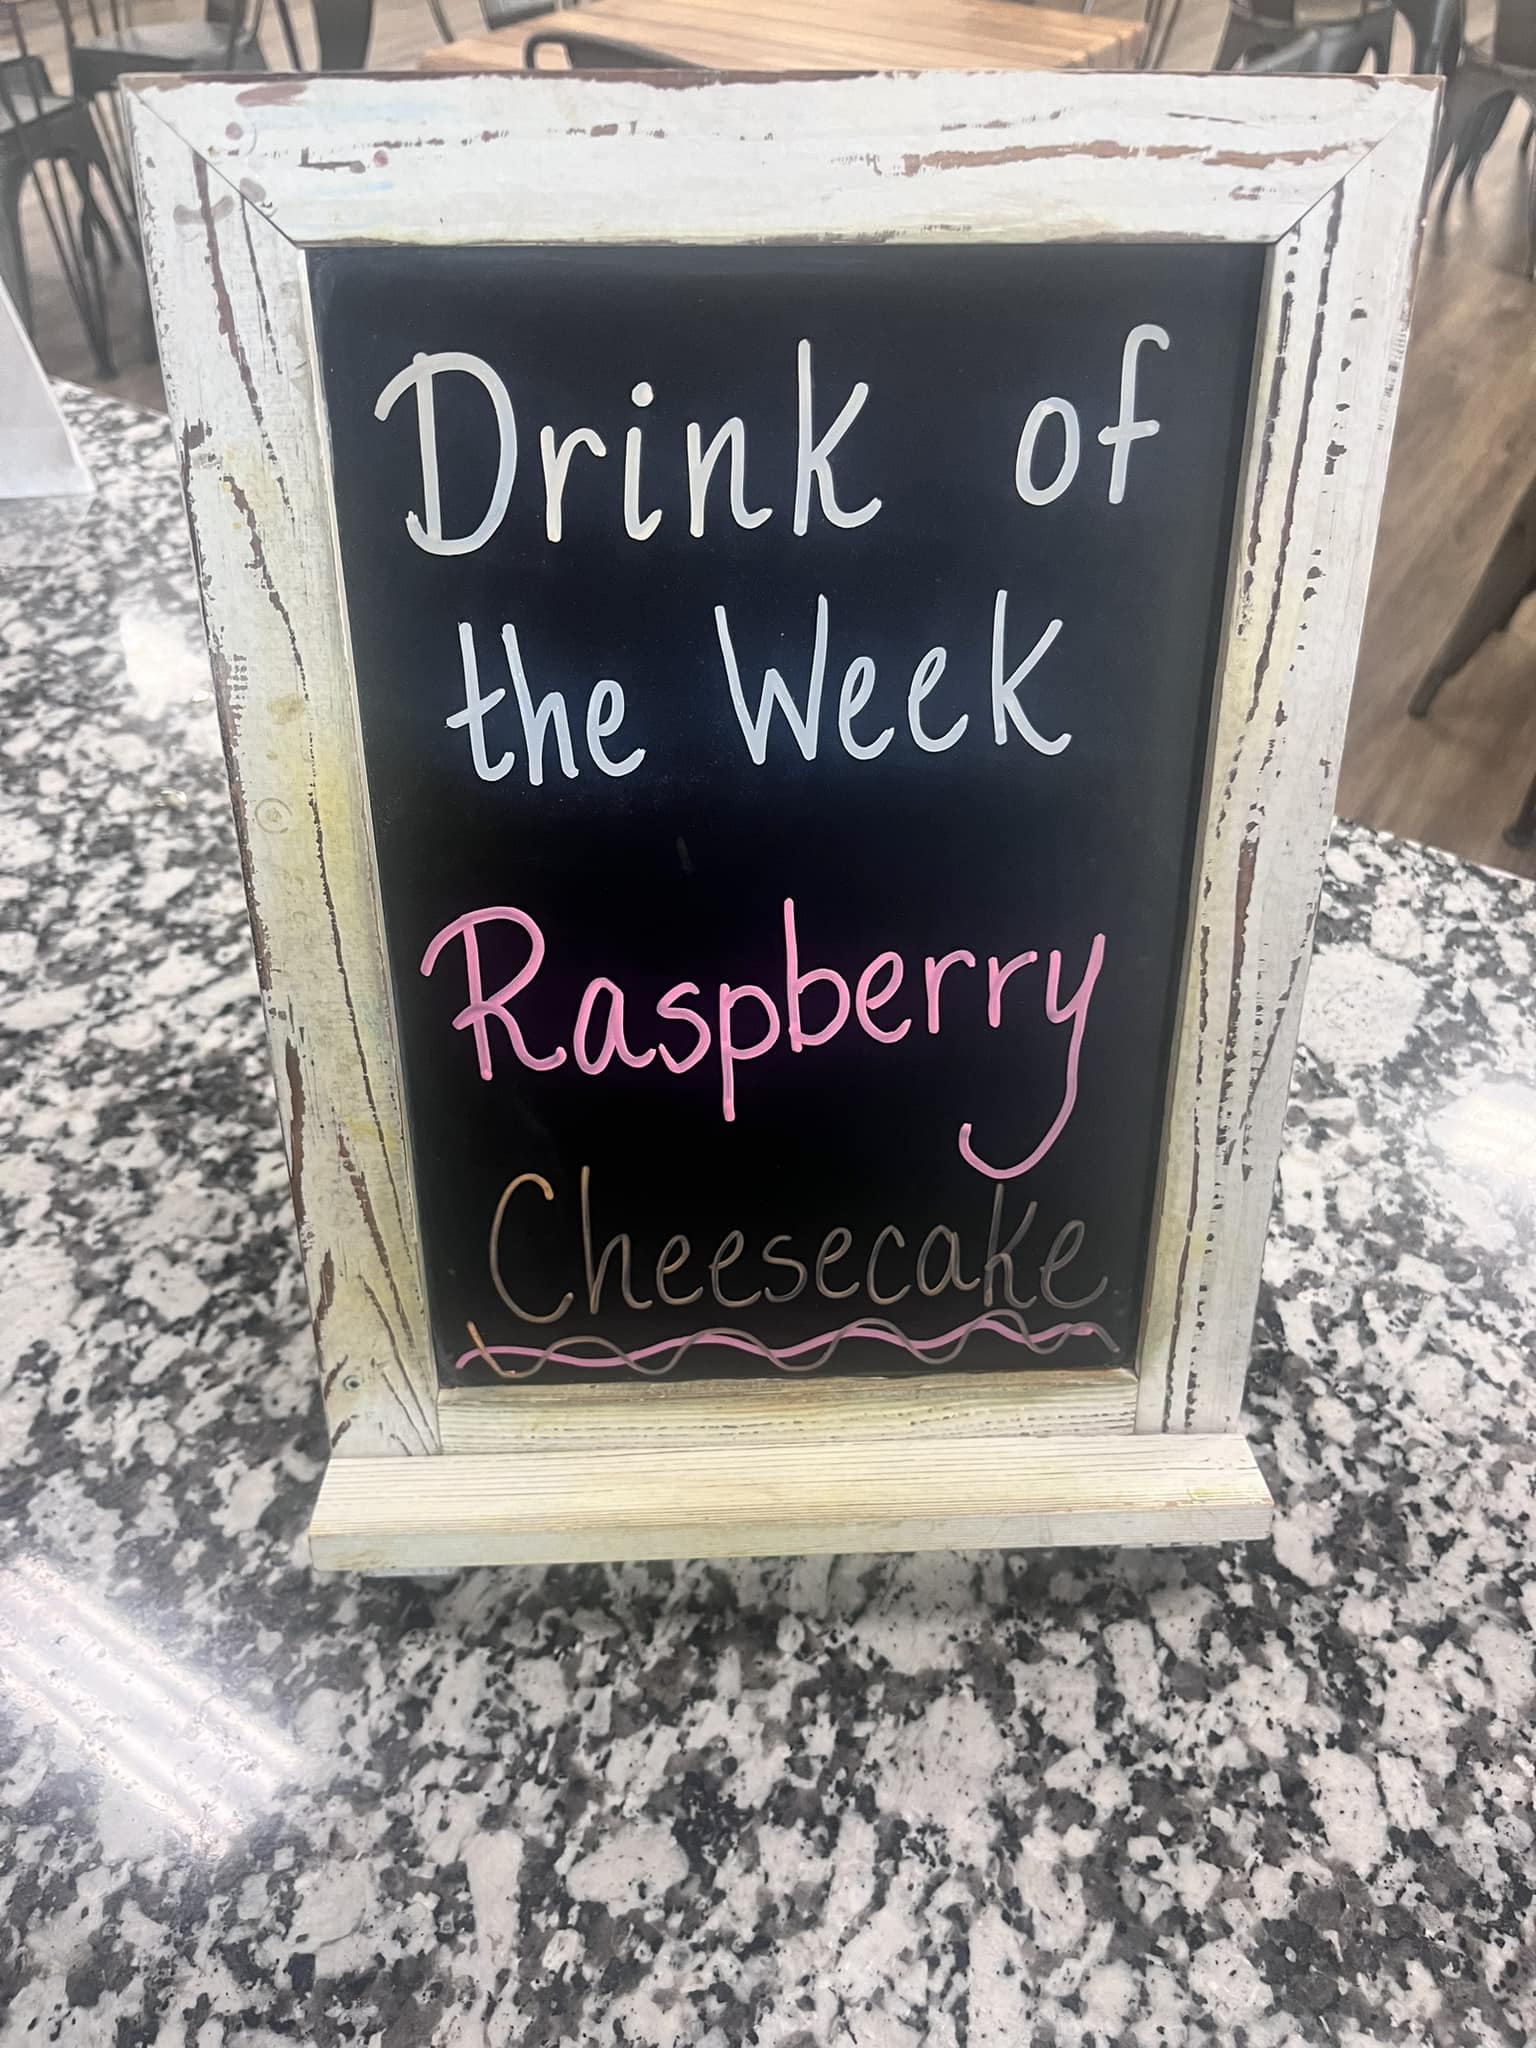 Drink of
the Week
Raspberry
Cheesecake